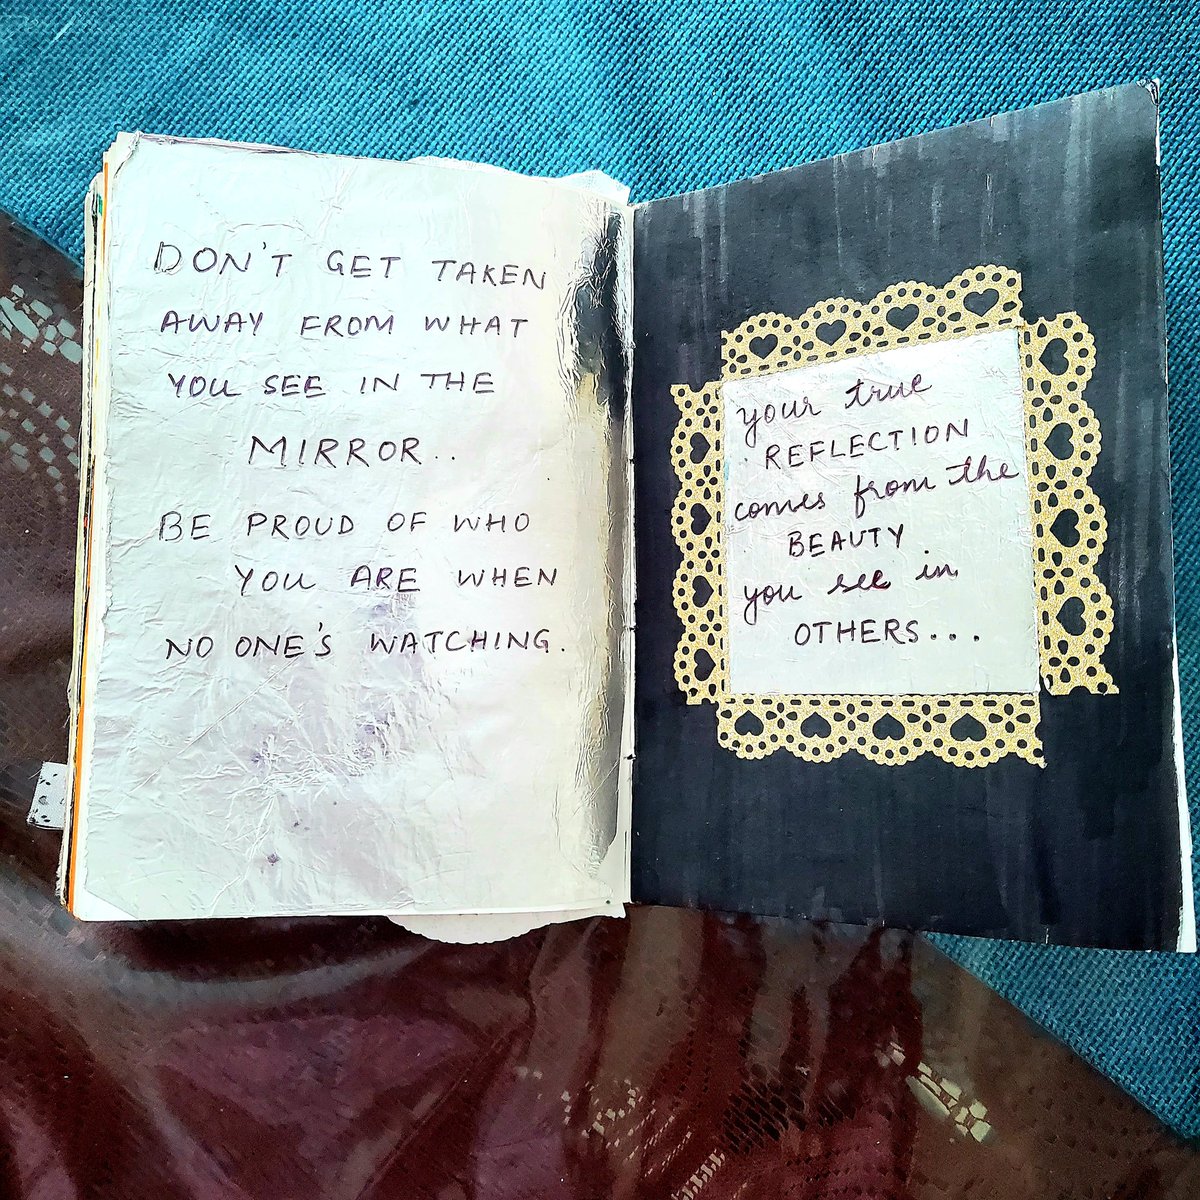 DON'T GET TAKEN
AWAY FROM WHAT
YOU SEE IN THE
MIRROR..
BE PROUD OF WHO
YOU ARE WHEN
NO ONE'S WATCHING.
your true
REFLECTION
comes from the
BEAUTY
you see in
OTHERS...